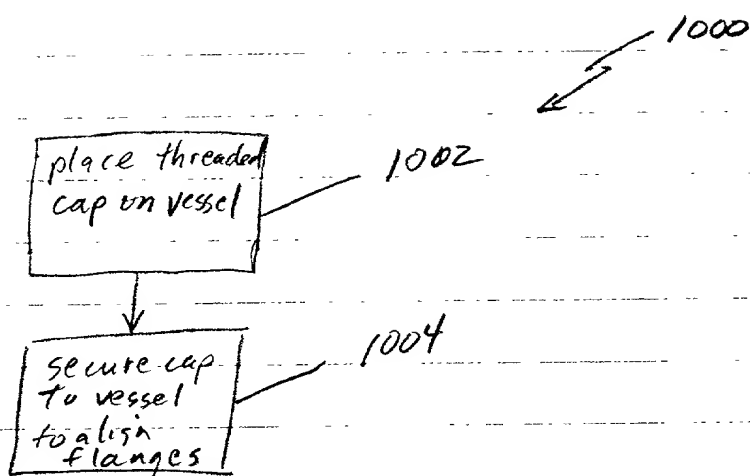 1000
place threaded
cap on vessel
1002
secure cap
to vessel
to align
flanges
1004